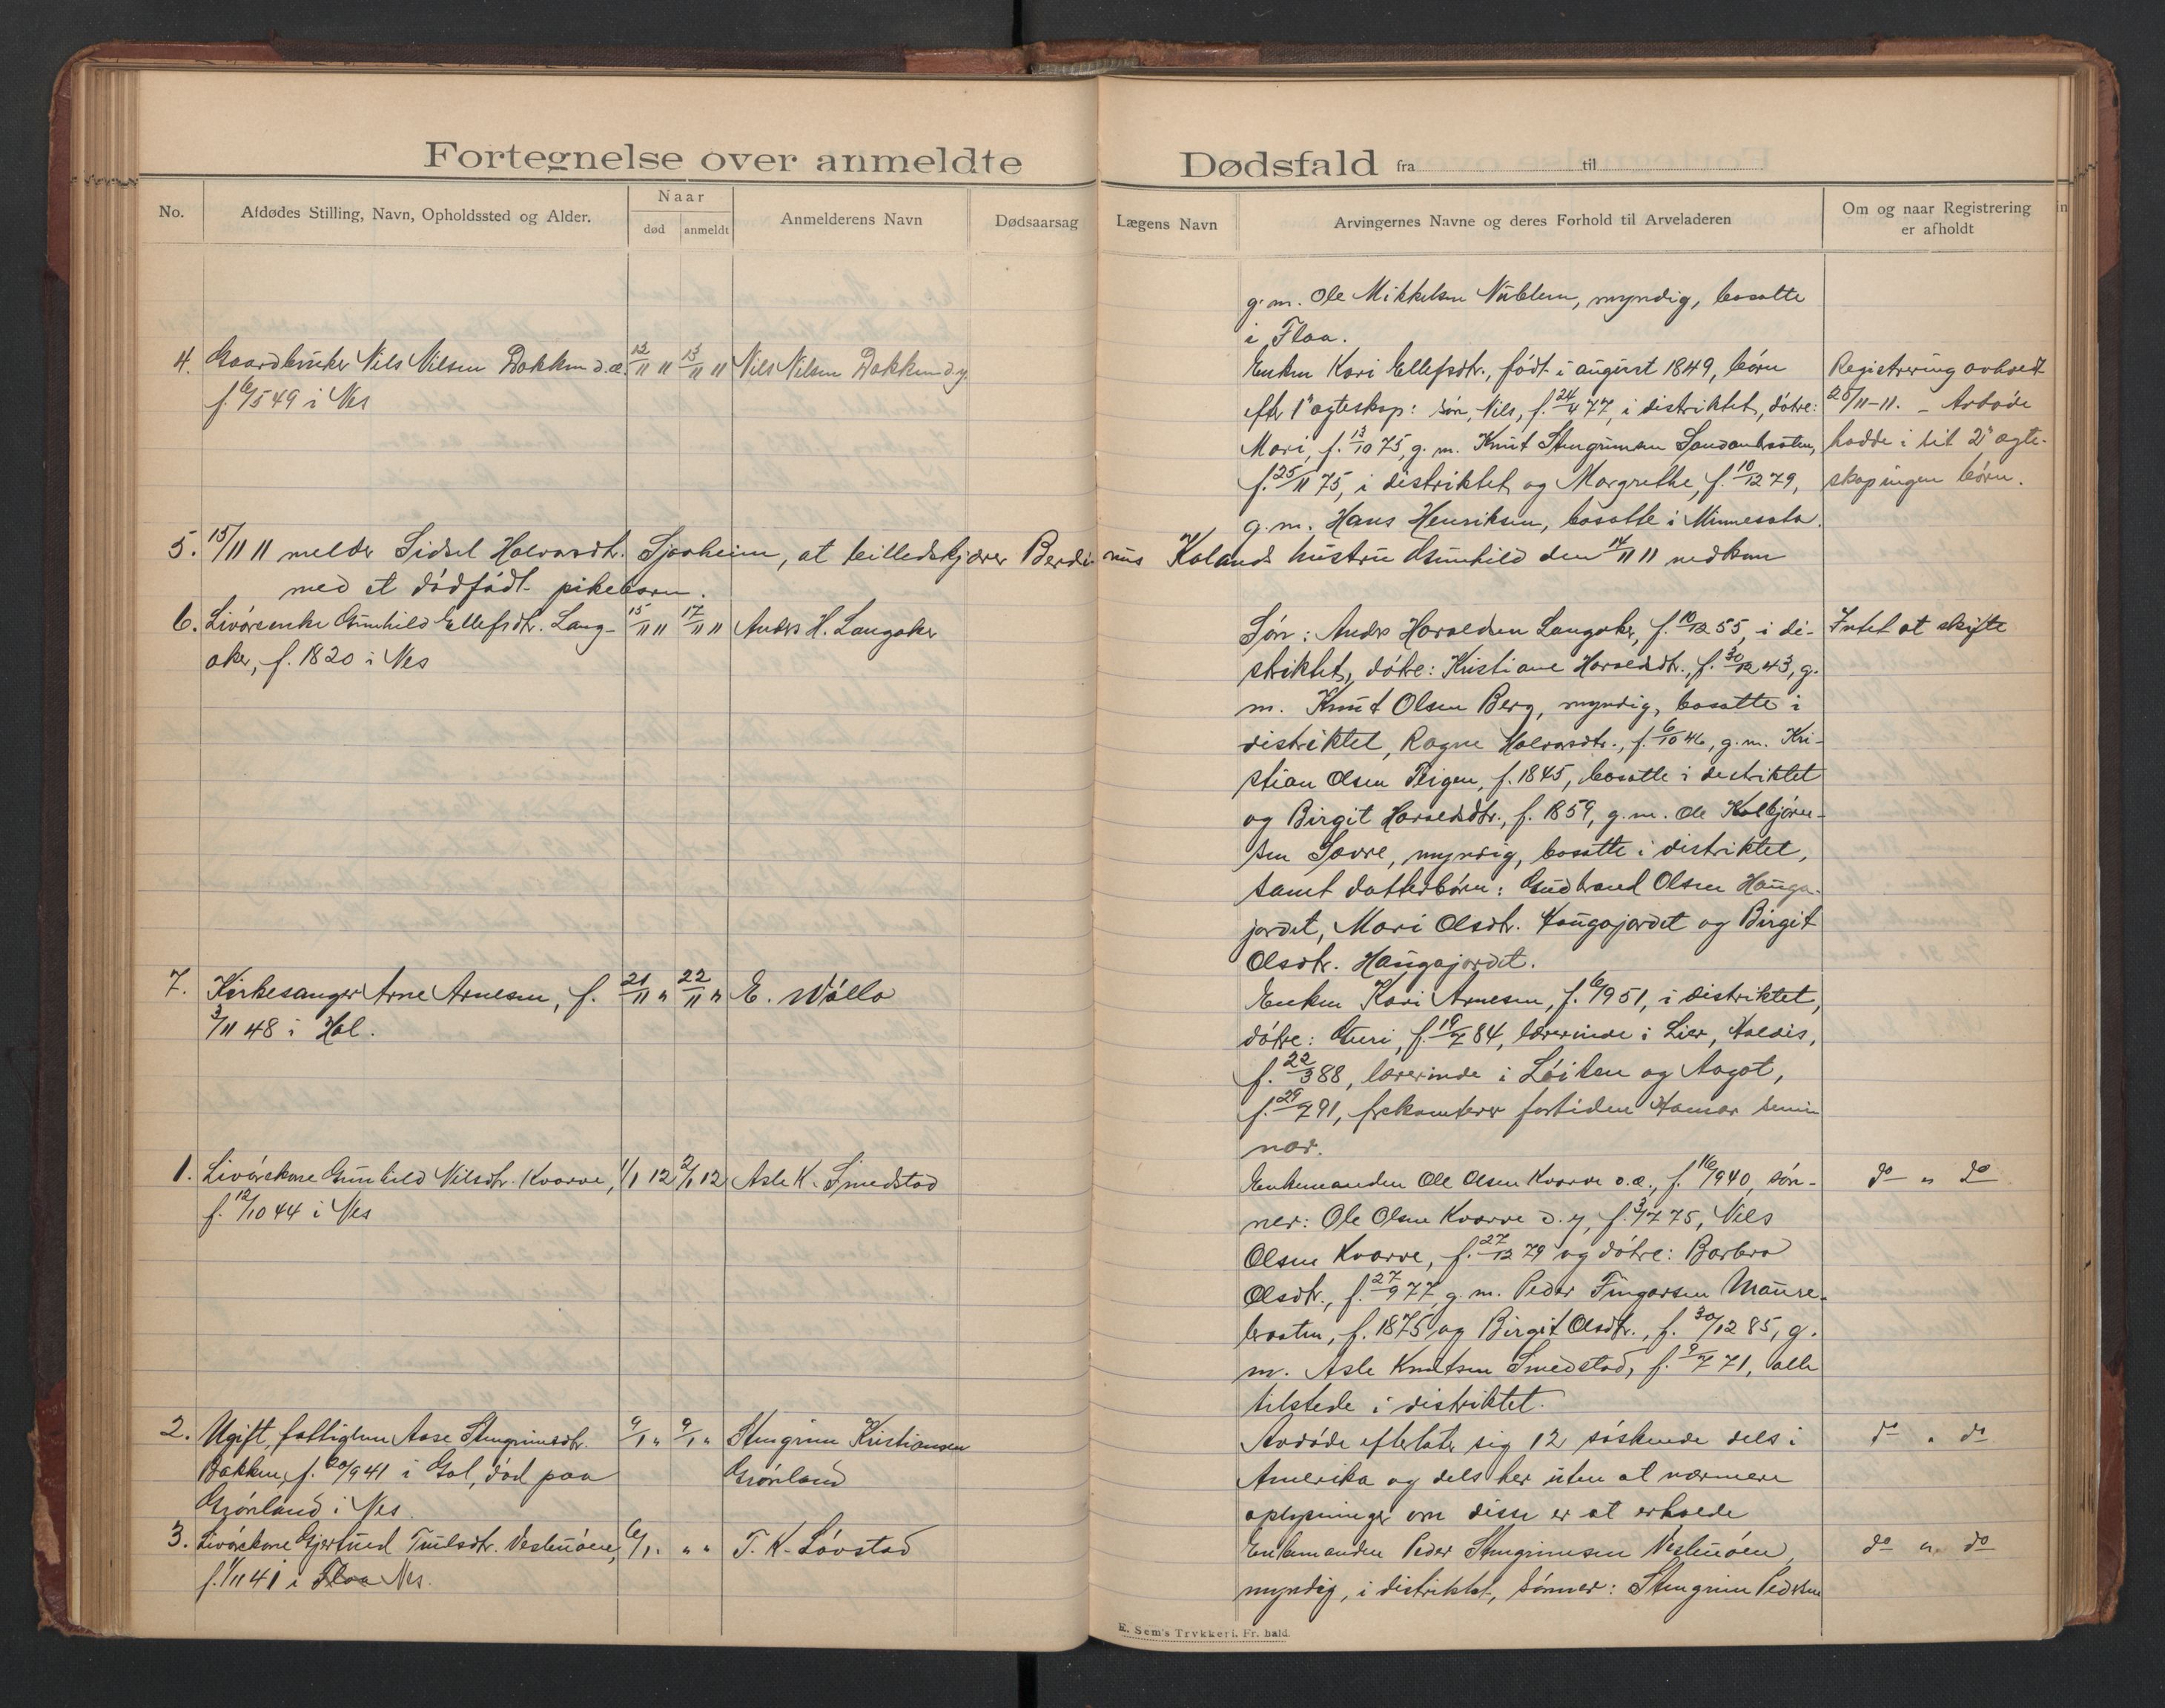 Fortegnelse over anmeldte Dødsfald fra til
No.
Afdødes Stilling, Navn, Opholdssted og Alder.
Naar
død
anmeldt
Anmelderens Navn
Dødsaarsag
Lægens Navn
Arvingernes Navne og deres Forhold til Arveladeren
Om og naar Registrering
er afholdt
in
g. m. Ole Mikkelsen Nüblem, myndig, bosatte
i Flaa.
4. Gaardbruker Nils Nilsen Bakken d.æ. 12/11 11 13/11 11 Nils Nilsen Bakken d.y.
f. 6/5 49 i Nes
Enken Kari Ellefsdtr., født i august 1849, børn
efter 1' ægteskap: søn, Nils, f. 24/4 77, i distriktet, døtre:
Mari, f. 13/10 75, g. m. Knut Stengrimsen
f. 25/11 75, i distriktet og Margrethe, f. 10/12 79,
g. m. Hans Henriksen, bosatte i Minnesota.
Registrering avholdt
25/11-11. - Avdøde
hadde i sit 2' ægte-
skap ingen børn.
5. 15/11 11 melder Sidsel Halvorsdtr. Sjaaheim, at billedskjærer Berdinus Kolands hustru Gunhild den 14/11 11 nedkom
med et dødfødt pikebarn.
6. Livørsenke Gunhild Ellefsdtr. Lang- 15/11 11 17/11 11 Anders H. Langaker
aker, f. 1820 i Nes
Søn: Anders Haraldsen Langaker, f. 10/12 55, i di-
striktet, døtre: Kristiane Haraldsdtr., f. 30/12 43, g.
m. Knut Olsen Berg, myndig, bosatte i
distriktet, Ragne Halvorsdtr., f. 6/10 46, g. m. Kri-
stian Olsen Teigen, f. 1845, bosatte i destriktet
og Birgit Haraldsdtr., f. 1859, g. m. Ole Kolbjørn-
sen Sævre, myndig, bosatte i distriktet,
samt datterbørn: Gudbrand Olsen Hauga-
jordet, Mari Olsdtr. Haugajordet og Birgit
Olsdtr. Haugajordet.
Intet at skifte
7. Kirkesanger Arne Arnesen, f. 21/11 " 22/11 " E. Wøllo
3/11 48 i Hol.
Enken Kari Arnesen, f. 6/9 51, i distriktet,
døtre: Guri, f. 19/7 84, lærerinde i Lier, Haldis,
f. 22/3 88, lærerinde i Løiten og Aagot,
f. 29/7 91, frekventerer fortiden Hamar semin
nar.
1. Livørskone Gunhild Nilsdtr. Kvarve, 1/1 12 2/1 12 Asle K. Smedstad
f. 12/10 44 i Nes
Enkemanden Ole Olsen Kvarve d.æ., f. 16/9 40, søn-
ner: Ole Olsen Kvarve d. y, f. 3/7 75, Nils
Olsen Kvarve, f. 27/12 79 og døtre: Barbro
Olsdtr., f. 27/9 77, g. m. Peder Fingarsen Maure-
braaten, f. 1875 og Birgit Olsdtr., f. 30/12 85, g.
m. Asle Knutsen Smedstad, f. 9/7 71, alle
tilstede i distriktet.
do " do
2. Ugift, fattiglem Aase Stengrimsdtr. 6/1 " 9/1 " Stengrim Kristiansen
Bakken, f. 20/9 41 i Gol, død paa Grønland
Grønland i Nes.
Avdøde efterlater sig 12 søskende dels i
Amerika og dels her uten at nærmere
oplysninger om disse er at erholde
do " do
3. Livørskone Gjertrud Trulsdtr. Vestenøen, 6/1 " " " T. K. Løvstad
f. 1/11 41 i Flaa Nes.
Enkemanden Peder Stengrimsen Vestenøen,
myndig, i distriktet, sønner: Stengrim Pedersen
do " do
E. Sem's Trykkeri. Fr. hald.